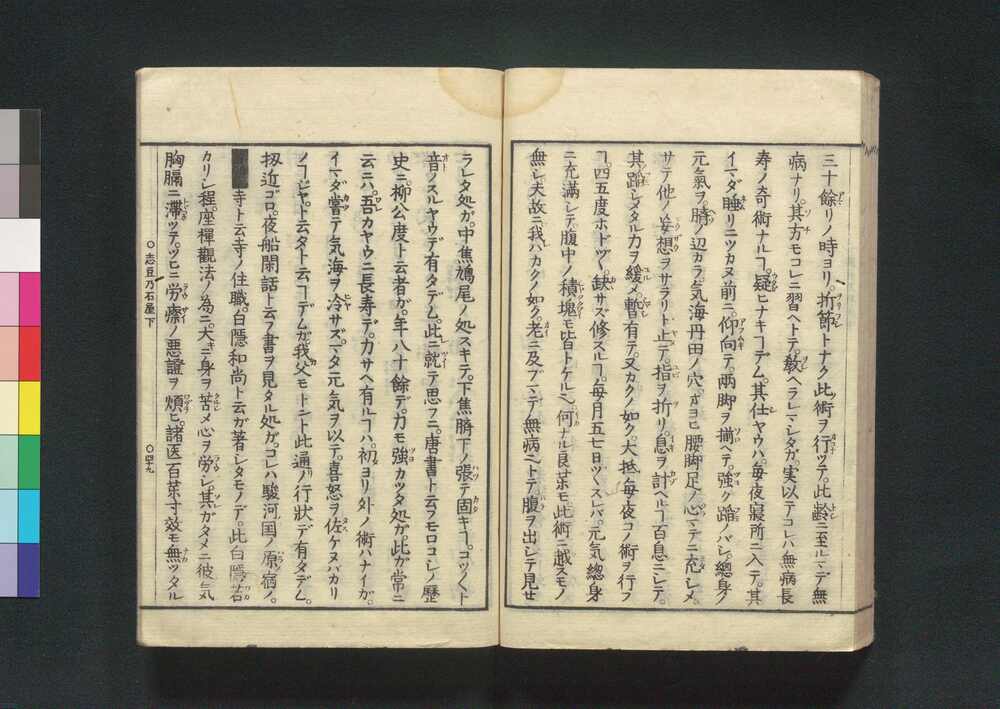 三十餘リノ時ヨリ。折節トナク此術ヲ行ツテ。此齢ニ至ルマデ無
病ナリ。其方モコレニ習ヘトテ。教ヘラレマシタガ。実以テコレハ無病長
寿ノ奇術ナルヿ。疑ヒナキヿデム。其仕ヤウハ。毎夜寝所ニ入テ。其
イマダ睡リニツカヌ前ニ。仰向テ。両脚ヲ揃ヘテ。強ク踏ノバシ。總身ノ
元氣ヲ。臍ノ辺カラ。気海丹田ノ穴。オヨヒ腰脚足ノ心マデニ充シメ。
サテ他ノ妄想ヲサラリト止テ。指ヲ折リ。息ヲ計ヘルヿ百息ニシテ。
其踏シメタル力ヲ緩メ。暫有テ。又カクノ如ク。大抵毎夜コノ術ヲ行フ
ヿ。四五度ホドヅヽ。缺サズ修スルヿ。毎月五七日ヅヽスレバ。元気總身
ニ充満シテ。腹中ノ積塊モ皆トケルム。何ナル良薬モ此術ニ越スモノ
無シ。夫故ニ我ハカクノ如ク。老ニ及ブマデ無病ム。トテ。腹ヲ出シテ見セ
ラレタ処ガ。中焦鳩尾ノ処スキテ。下焦臍下ノ張テ固キヿ。コツ〱ト
音ノスルヤウデ有タデム。此ニ就テ思フニ。唐書ト云フモロコシノ歴
史ニ。柳公度ト云者ガ。年八十餘デ。力モ強カツタ処ガ。此ガ常ニ
云ニハ。吾カヤウニ長寿デ。力サヘ有ルヿハ。初ヨリ外ノ術ハナイガ。
イマダ嘗テ気海ヲ冷サズ。マタ元気ヲ以テ。喜怒ヲ佐ケヌバカリ
ノヿジヤ。ト云タト云ヿデムガ。我父モトント此通ノ行状デ有タデム。
扨近ゴロ。夜船閑話ト云フ書ヲ見タル処ガ。コレハ駿河国ノ原宿ノ。
寺ト云寺ノ住職。白隠和尚ト云ガ著レタモノデ。此白隠若
カリシ程。座禪觀法ノ為ニ。大キニ身ヲ苦メ心ヲ労シ。其ガタメニ彼気
胸膈ニ滞ツテ。ツヒニ労瘵ノ悪證ヲ煩ヒ。諸医百薬寸效モ無ツタル
○志豆乃石屋下
○四十九